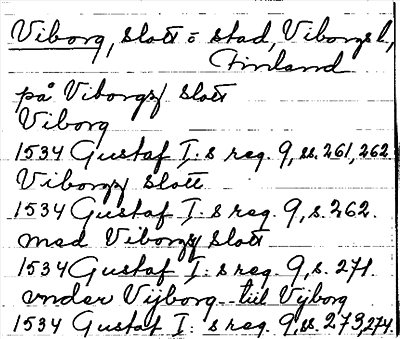 Viborg, slott o stad, Viborgs l,
Finland
på Viborgz slott
Viborg
1534 Gustaf I:s reg. 9, ss. 261, 262
Viborgz slott
1534 Gustaf I:s reg. 9, s. 262.
med Viborgz slott
1534 Gustaf I:s reg. 9, s. 271.
vnder Vijborg - till Vijborg
1534 Gustaf I:s reg. 9, ss. 273, 274.